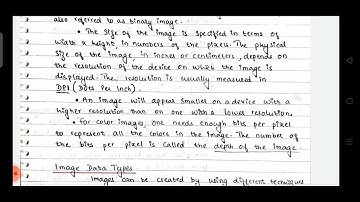 also referred to as binary image.
• The size of the image is specified in terms of
width x height, in numbers of the pixels. The physical
size of the image, in inches or centimeters, depends on
the resolution of the device on which the image is
displayed. The resolution is usually measured in
DPI (Dots Per Inch).
• An image will appear smaller on a device with a
higher resolution than on one with a lower resolution.
• For color images, one needs enough bits per pixel
to represent all the colors in the image. The number of
the bits per pixel is called the depth of the image.
Image Data Types
Images can be created by using different techniques